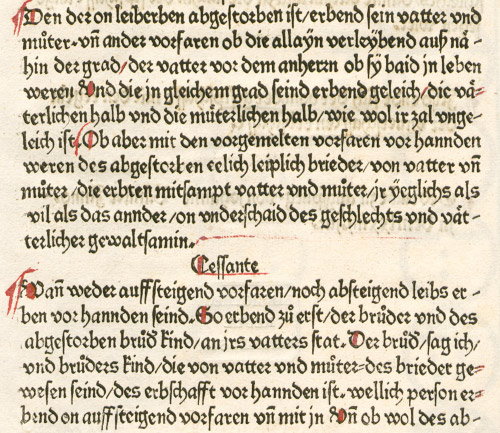 Den der on leiberben abgestorben ist/erbend sein vatter vnd
můter. vñ ander vorfaren ob die allayn verleybend auß nä-
hin der grad/der vatter vor dem anherrn ob sy baid in leben
weren Vnd die in gleichem grad seind erbend geleich/die vä-
terlichen halb vnd die můterlichen halb/wie wol ir zal vnge-
leich ist. Ob aber mit den vorgemelten vorfaren vor hannden
weren des abgestorben eelich leiplich brieder/von vatter vñ
můter/die erbten mitsampt vatter vnd můter/jr yeglichs als
vil als das annder/on vnderschaid des geschlechts vnd vät-
terlicher gewaltsamin.
Cessante
Wañ weder auffsteigend vorfaren/noch absteigend leibs er-
ben vor hannden seind. So erbend zů erst/der brůder vnd des
abgestorben průd kind/an jrs vatters stat. Der brůd/sag ich/
vnd brůders kind/die von vatter vnd můter des brieder ge-
wesen seind/des erbschafft vor hannden ist. wellich person er-
bend on auffsteigend vorfaren vñ mit jn Vñ ob wol des ab-